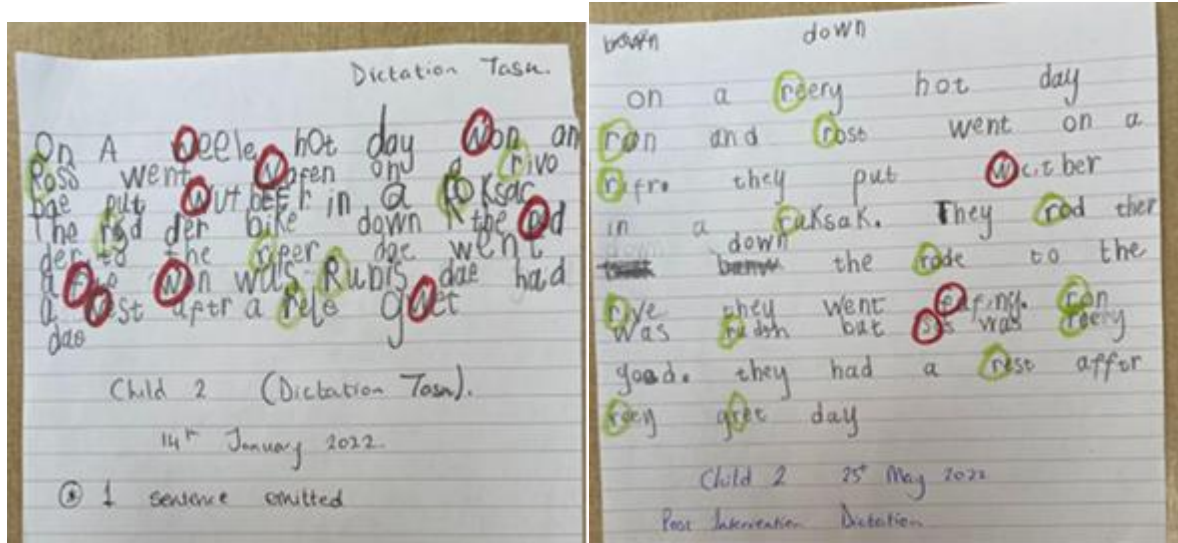 Dictation Task.
On A weele hot day Won an
Ross went on a rivo
dae put wutbeer in a roksac
The rod der bike down the od
der to the riper dae went
a Won was Rubis dae had
a west aftr a rele gwet
dae
Child 2 (Dictation Task).
14th January 2022.
* 1 sentence omitted
down
on a reery hot day
ron and rost went on a
rifr. they put wcitber
in a raksak. They rod ther
down the rode to the
rive they went
was but was reery
good. they had a rest affer
reey gret day
Child 2 25th May 2022
Post Intervention Dictation